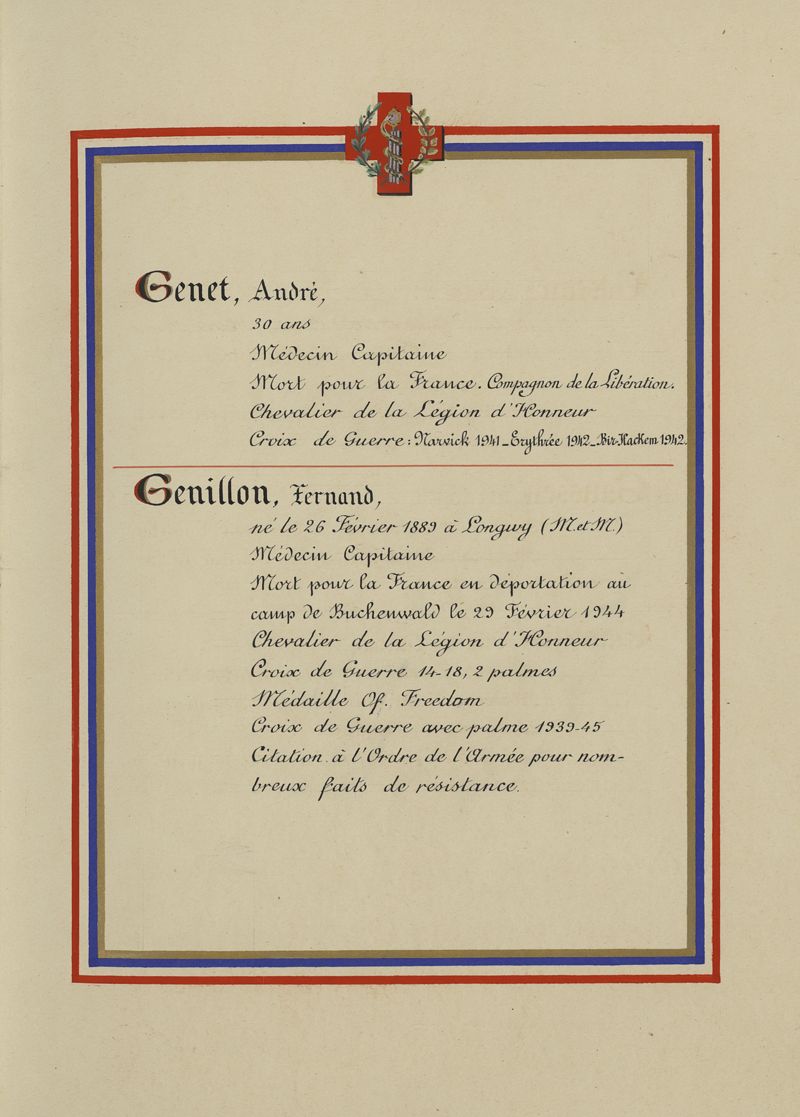 Genet, André,
30 ans
Médecin Capitaine
Mort pour la France. Compagnon de la Libération.
Chevalier de la Légion d'Honneur
Croix de Guerre: Narvick 1941_Erythrée 1942_Bir-Hackem 1942.
Genillon, Fernand,
né le 26 Février 1889 à Longwy (M.et M.)
Médecin Capitaine
Mort pour la France en déportation au
camp de Buchenwald le 29 Février 1944
Chevalier de la Légion d'Honneur
Croix de Guerre 14-18, 2 palmes
Médaille Of. Freedom
Croix de Guerre avec palme 1939-45
Citation à l'Ordre de l'Armée pour nom-
breux faits de résistance.